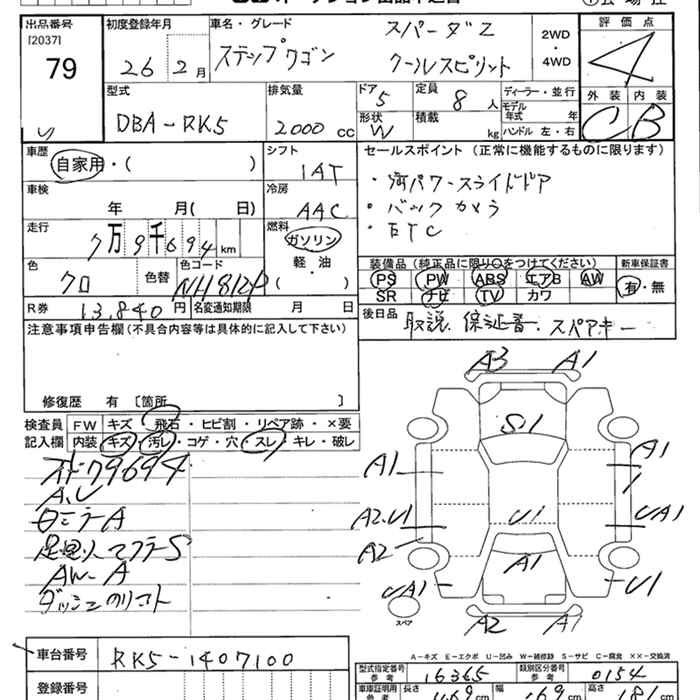 出品番号 初度登録年月 車名・グレード スパーダZ 2WD 評価点
[2037] 79 26 2月 ステップワゴン クールスピリット ・4WD 4
型式 排気量 ドア 5 定員 8人 ディーラー・並行 外装 内装
DBA-RK5 2000cc 形状 W 積載 kg モデル年式 年 C B
ハンドル 左・右
車歴 シフト セールスポイント(正常に機能するものに限ります)
自家用・( ) IAT
・パワースライドドア
車検 冷房
年 月( 日) AAC ・バックカメラ
走行 燃料 ・ETC
7万9千694km ガソリン
色 色替 色コード 軽・油 装備品(純正品に限り○をつけてください) 新車保証書
クロ NH812P ( ) PS PW ABS エアB AW 有・無
SR ナビ TV カワ
R券 13,840円 名変通知期限 月 日 後日品 取説.保証書.スペアキー
注意事項申告欄(不具合内容等は具体的に記入して下さい)
修復歴 有 〔箇所 〕
A3 A1
検査員 FW キズ・飛石・ヒビ割・リペア跡・×要 S・1
記入欄 内装 キズ・汚レ・コゲ・穴・スレ・キレ・破レ
79694 A1 A1
A.U
A A2.U1 U1 UA1
S A2
AW-A A1 UA1 U1
ダッシュ
スペア A2 A1
A-キズ E-エクボ U-凹み W-補修跡 S-サビ C-腐食 XX-交換済
車台番号 RK5-1407100 型式指定番号 参考 16365 類別区分番号 参考 0154
登録番号 車庫証明用 参考 長さ 469cm 幅 169cm 高さ 181cm